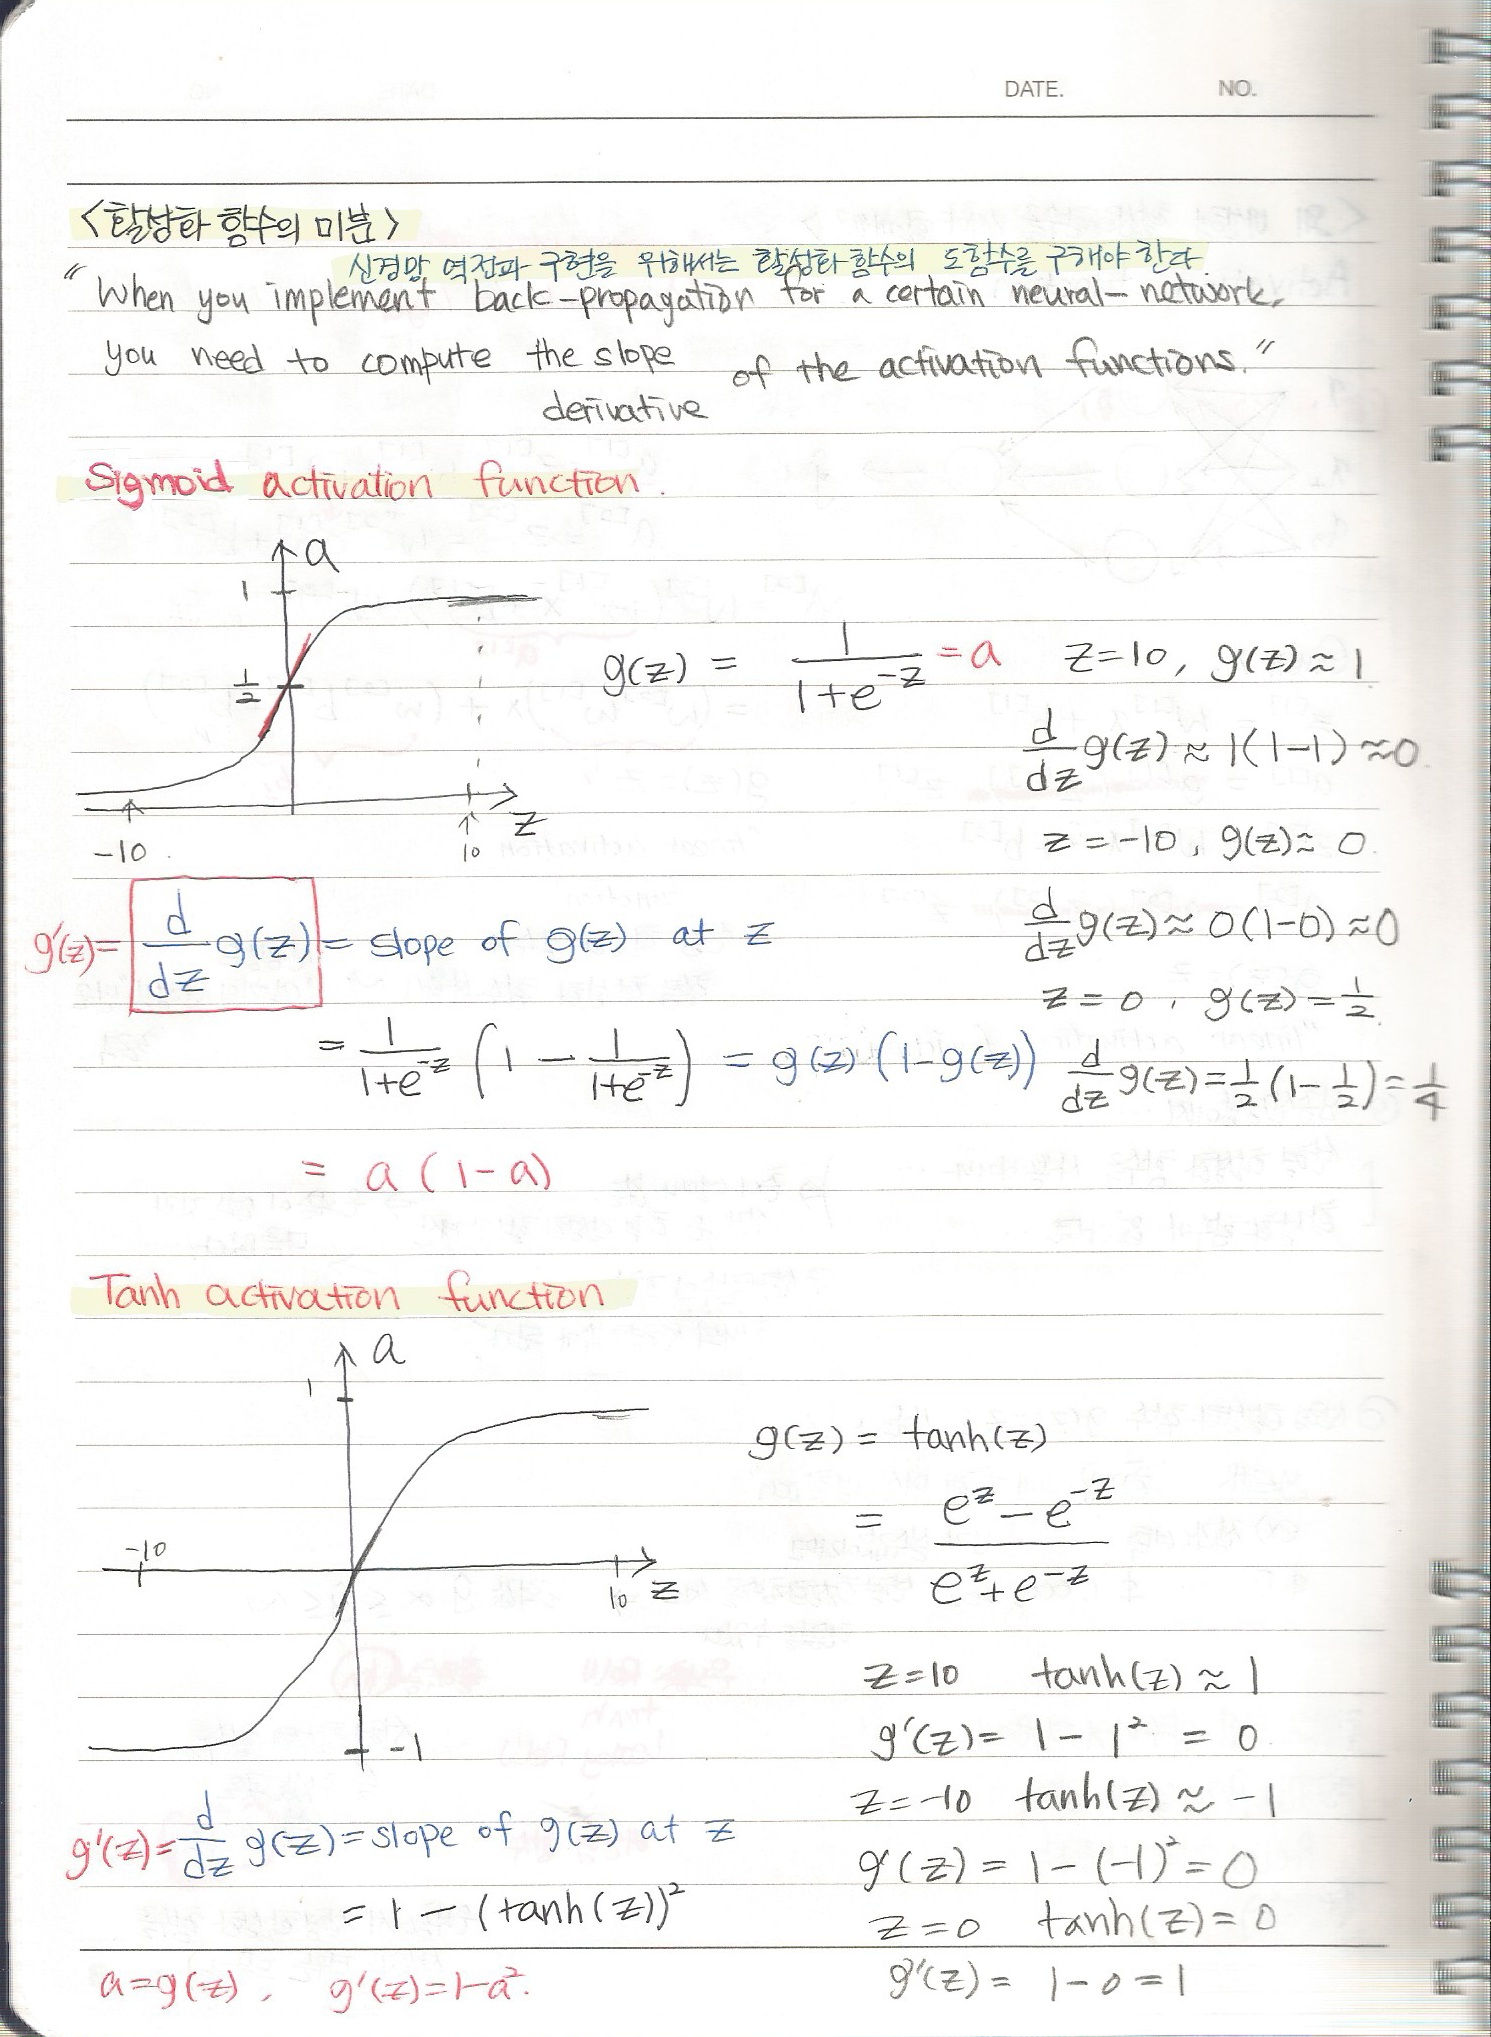 DATE. NO.
<활성화 함수의 미분>
신경망 역전파 구현을 위해서는 활성화 함수의 도함수를 구해야 한다.
"When you implement back-propagation for a certain neural-network,
you need to compute the slope of the activation functions."
derivative
Sigmoid activation function.
a
1
1/2
-10
10
z
g(z) = 1/(1+e^-z) = a
z=10, g(z) ≈ 1
d/dz g(z) ≈ 1(1-1) ≈ 0
z = -10, g(z) ≈ 0.
d/dz g(z) ≈ 0(1-0) ≈ 0
z = 0, g(z) = 1/2
d/dz g(z) = 1/2 (1 - 1/2) = 1/4
g'(z) = d/dz g(z) = slope of g(z) at z
= 1/(1+e^-z) (1 - 1/(1+e^-z)) = g(z) (1-g(z))
= a (1-a)
Tanh activation function
a
1
-10
10
z
-1
g(z) = tanh(z)
= (e^z - e^-z)/(e^z + e^-z)
z=10 tanh(z) ≈ 1
g'(z) = 1 - 1² = 0
z=-10 tanh(z) ≈ -1
g'(z) = 1 - (-1)² = 0
z=0 tanh(z) = 0
g'(z) = 1-0 = 1
g'(z) = d/dz g(z) = slope of g(z) at z
= 1 - (tanh(z))²
a=g(z), g'(z)=1-a².